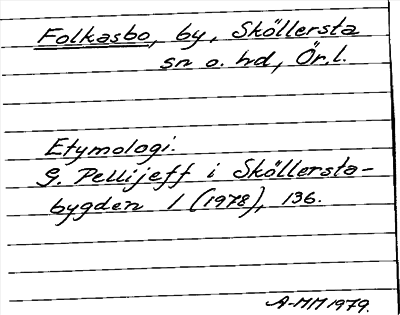 Folkasbo, by, Sköllersta
sn o. hd, Ör.l.
Etymologi:
G. Pellijeff i Sköllersta-
bygden 1 (1978), 136.
A-MM 1979.